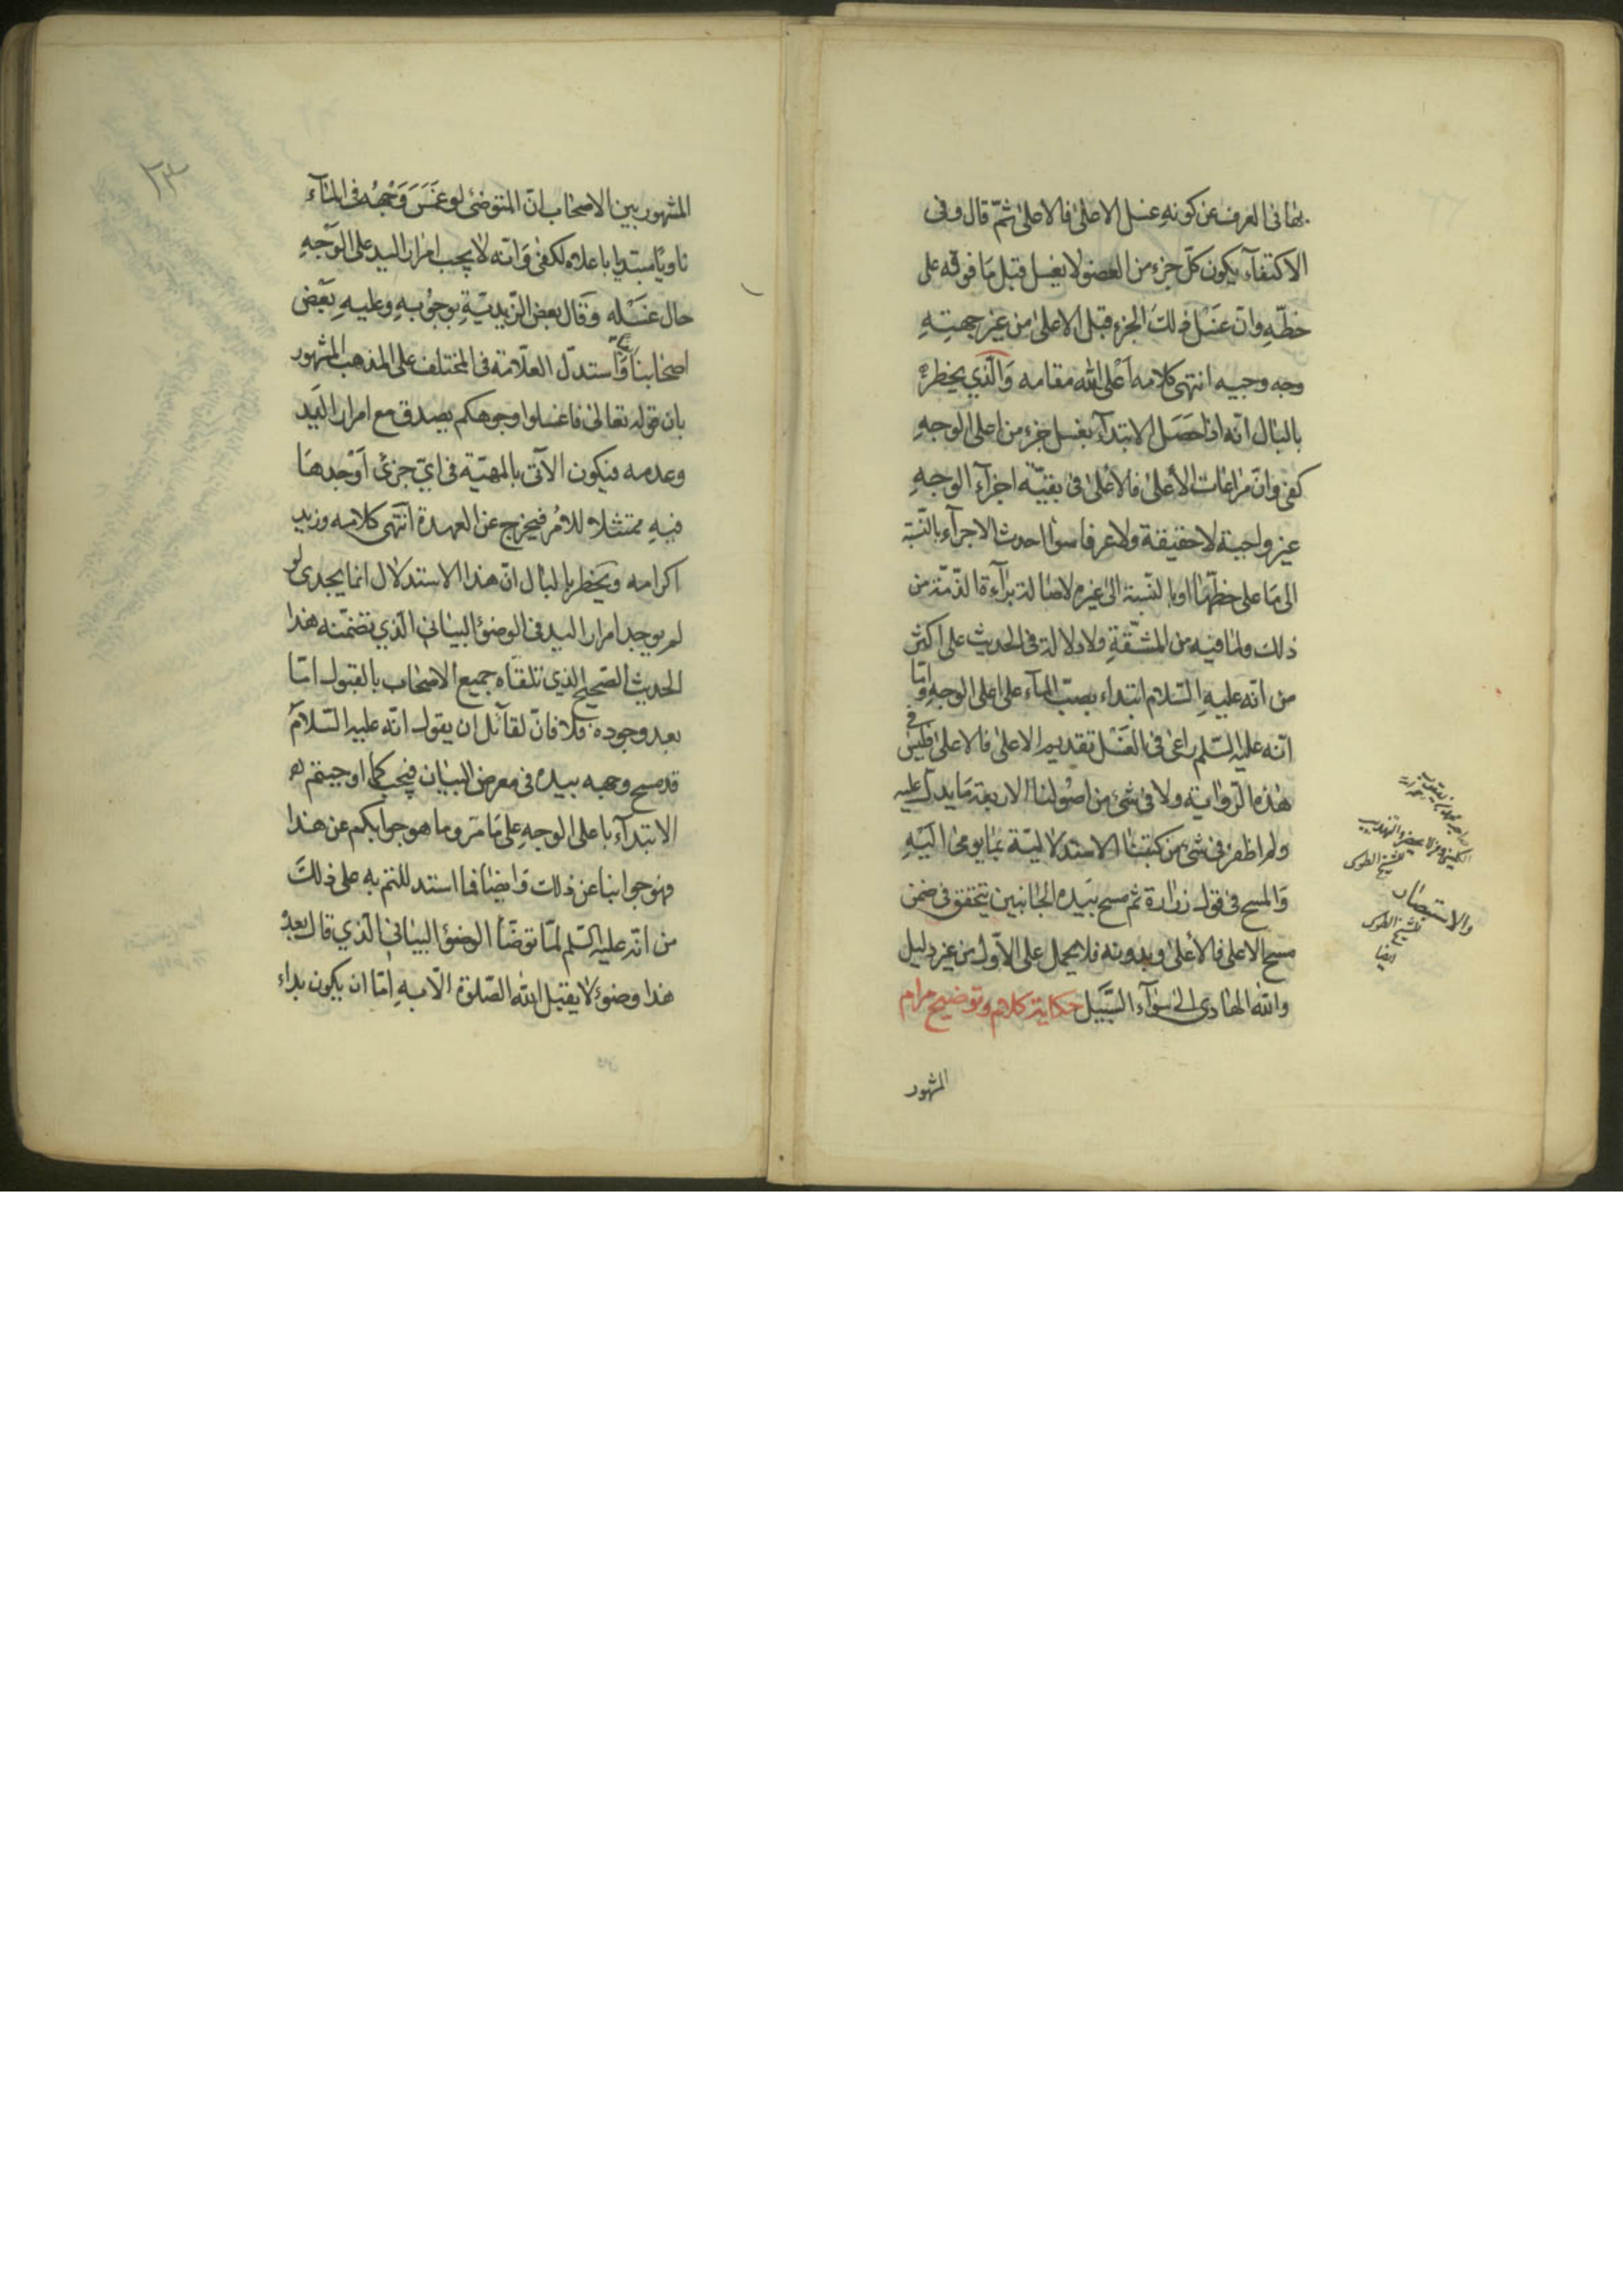 بها في العرف عن كونه غسل الاعلى فالاعلى ثمّ قال وفى
الاكتفآء بكون كلّ جزء من العضو لا يغسل قبل ما فوقه على
خطّه وان غسل ذلك الجزء قبل الاعلى من غير جهته
وجه وجيه انتهى كلامه اعلى الله مقامه والّذي يخطر
بالبال انّه اذا حصل الابتدآء بغسل جزء من اعلى الوجه
كفى وانّ مراعات الأعلى فالأعلى فى بقيّة اجزآء الوجه
غير واجبة لا حقيقة ولا عرفا سوا احدث الاجزآء بالنّسبة
الى ما على خطّها او بالنّسبة الى غيره لاصالة برآءة الذّمّة من
ذلك ولما فيه من المشقّة ولا دلالة فى الحديث على اكثر
من انّه عليه السّلام ابتداء بصبّ المآء على اعلى الوجه وامّا
انّه عليه السّلم راعى فى الغسل تقديم الاعلى فالاعلى فليس فى
هذه الرّواية ولا فى شئ من اصولنا الاربعة ما يدلّ عليه
ولم اظفر فى شئ من كتبنا الاستدلاليّة بما يومئ اليه
والمسح فى قول زرارة ثم مسح بيده الجانبين يتحقق فى ضمن
مسح الاعلى فالأعلى وبدونه فلا يحمل على الاوّل من غير دليل
والله الهادى الى سوآء السّبيل حكاية كلام وتوضيح مرام
المشهور
للشيخ الطوسى
والاستبصار
للشيخ الطوسى
ايضا
٢٣
المشهور بين الاصحاب انّ المتوضئ لو غمس وجهه فى المآء
ناويا مبتديا باعلاه لكفى وانّه لا يجب امرار اليد على الوجه
حال غسله وقال بعض الزّيديّة بوجوبه وعليه بعض
اصحابنا واستدلّ العلّامة فى المختلف على المذهب المشهور
بان قوله تعالى فاغسلوا وجوهكم يصدق مع امرار اليد
وعدمه فيكون الآتى بالمهيّة فى ايّ جزئ اوجدها
فيه ممتثلا للامر فيخرج عن العهدة انتهى كلامه وزيد
اكرامه ويخطر بالبال انّ هذا الاستدلال انما يجدى لو
لم يوجد امرار اليد فى الوضوٴ البيانى الّذي تضمّنه هذا
الحديث الصّحيح الذي تلقّاه جميع الاصحاب بالقبول امّا
بعد وجوده فلا فانّ لقآئل ان يقول انّه عليه السّلام
قد مسح وجهه بيده فى معرض البيان فيجب كما اوجبتم
الابتدآء باعلى الوجه على ما مرّ وما هو جوابكم عن هذا
فهو جوابنا عن ذلك وايضا فما استدللتم به على ذلك
من انّه عليه السّلم لمّا توضّأ الوضوٴ البيانى الّذي قال بعده
هذا وضوٴ لا يقبل الله الصّلوة الّا به امّا ان يكون بداء